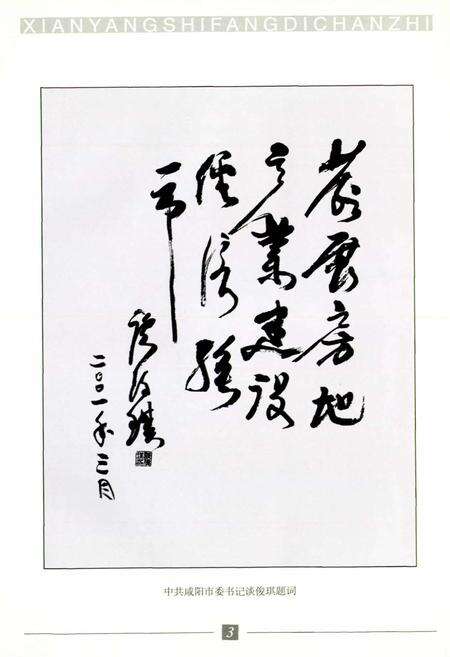 XIANYANGSHIFANGDICHANZHI
发展房地
产業建设
經济强
市
谈俊琪
二〇〇一年三月
中共咸阳市委书记谈俊琪题词
3